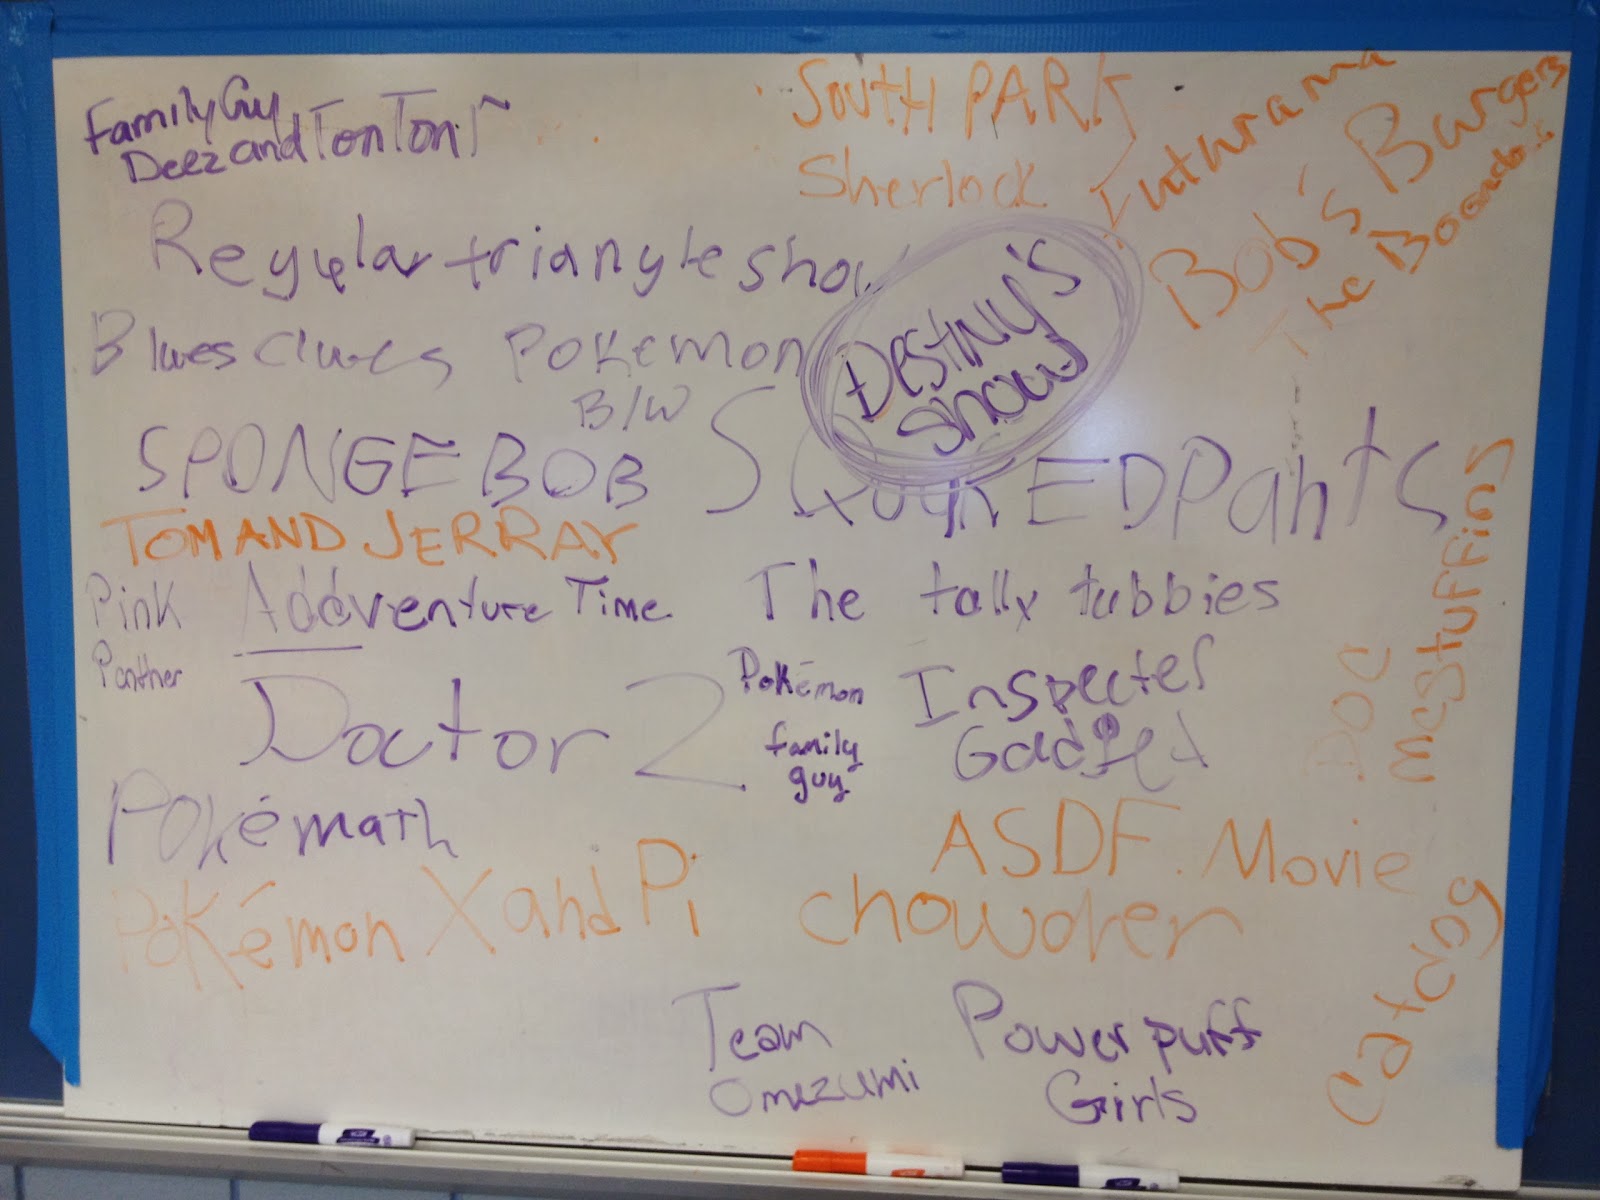 Family Guy
Deez and TonTon
SOUTH PARK
Sherlock
Futurama
Bob's Burgers
The Boondocks
Regular triangle show
Blues Clues
Pokemon
B/W
DESTINY'S
SHOW
SPONGEBOB SQUAREDPants
TOM AND JERRAY
Pink
Panther
Addventure Time
The tally tubbies
Doctor 2
Pokémon
family
guy
Inspecter
Gadget
DOC
McStuffins
Pokémath
Pokémon X and Pi
ASDF. Movie
chowder
Catdog
Team
Omezumi
Powerpuff
Girls